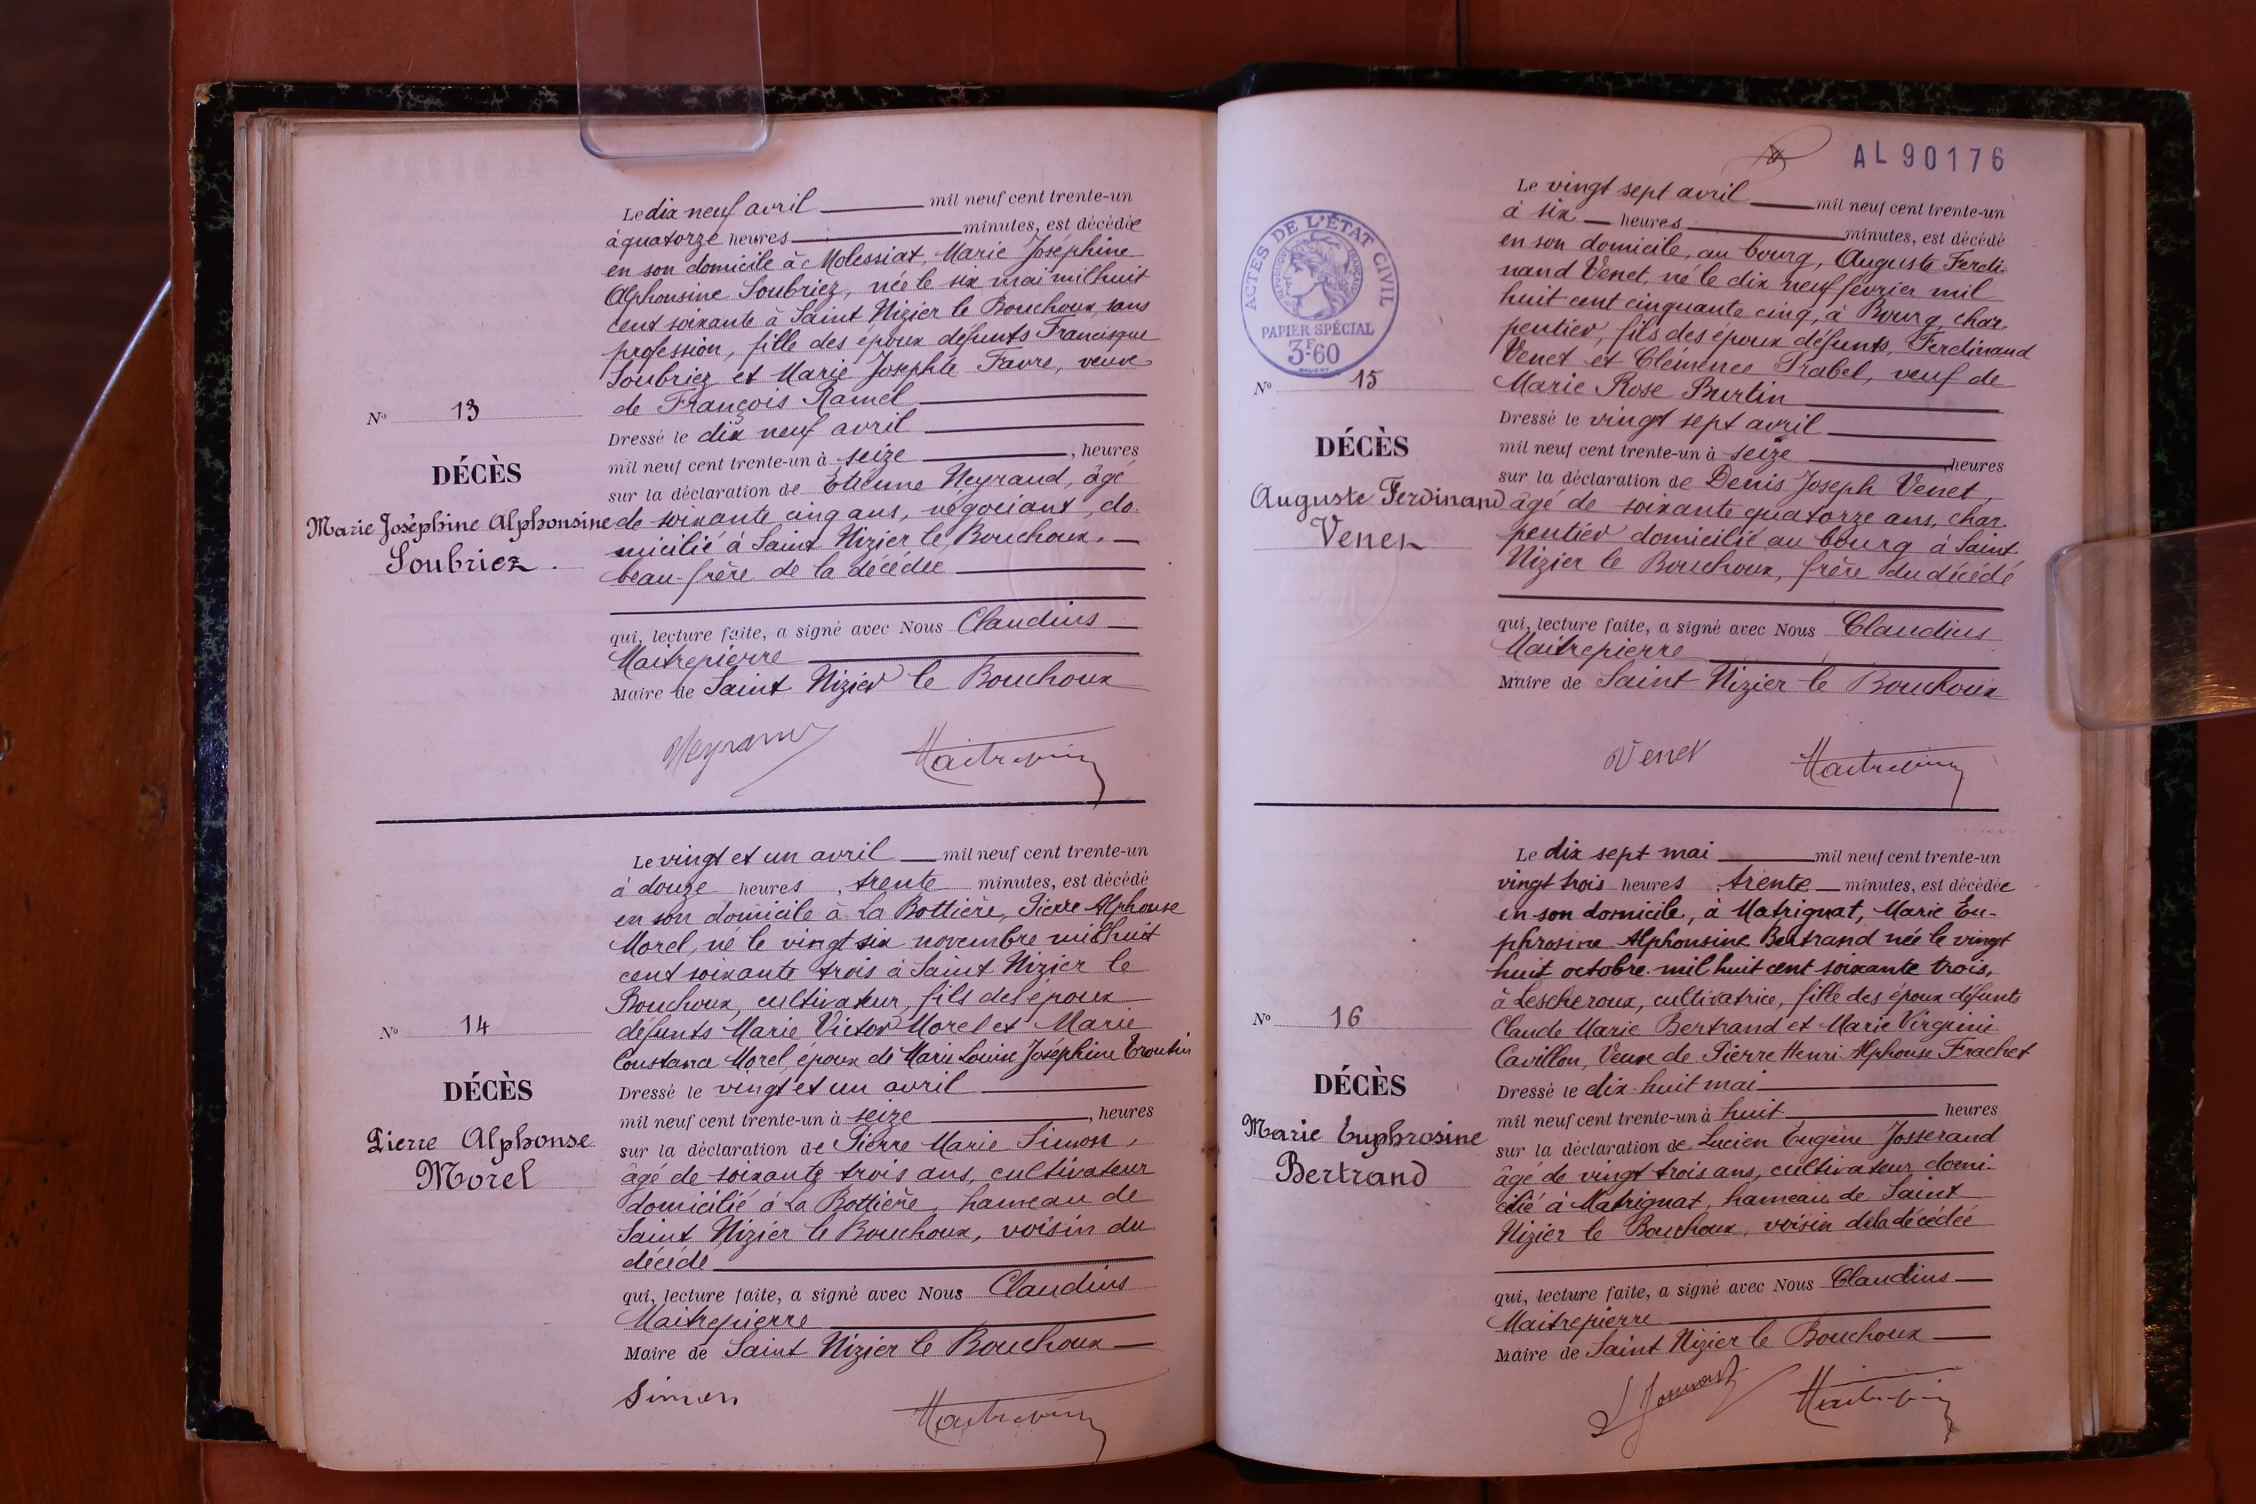 Le dix neuf avril mil neuf cent trente-un
à quatorze heures minutes, est décédée
en son domicile à Molessiat, Marie Joséphine
Alphonsine Soubriez, née le six mai mil huit
cent soixante à Saint Nizier le Bouchoux, sans
profession, fille des époux défunts Francisque
Soubriez et Marie Josephte Favre, veuve
de François Ramel
Dressé le dix neuf avril
mil neuf cent trente-un à seize, heures
sur la déclaration de Etienne Neyraud, âgé
de soixante cinq ans, négociant, do-
micilié à Saint Nizier le Bouchoux.
beau-frère de la décédée
qui, lecture faite, a signé avec Nous Claudius
Maitrepierre
Maire de Saint Nizier le Bouchoux
Neyraud Maitrepierre
No 13
DÉCÈS
Marie Joséphine Alphonsine
Soubriez.
Le vingt et un avril mil neuf cent trente-un
à douze heures, trente minutes, est décédé
en son domicile à La Bottière, Pierre Alphonse
Morel, né le vingt six novembre mil huit
cent soixante trois à Saint Nizier le
Bouchoux, cultivateur, fils des époux
défunts Marie Victor Morel et Marie
Constance Morel, époux de Marie Louise Joséphine
Dressé le vingt et un avril
mil neuf cent trente-un à seize, heures
sur la déclaration de Pierre Marie Simon,
âgé de soixante trois ans, cultivateur
domicilié à La Bottière, hameau de
Saint Nizier le Bouchoux, voisin du
décédé
qui, lecture faite, a signé avec Nous Claudius
Maitrepierre
Maire de Saint Nizier le Bouchoux
Simon Maitrepierre
No 14
DÉCÈS
Pierre Alphonse
Morel
AL 90176
Le vingt sept avril mil neuf cent trente-un
à six heures minutes, est décédé
en son domicile, au bourg, Auguste Ferdi-
nand Venet, né le dix neuf février mil
huit cent cinquante cinq, à Bourg, char-
pentier, fils des époux défunts, Ferdinand
Venet et Clémence Prabel, veuf de
Marie Rose Burtin
Dressé le vingt sept avril
mil neuf cent trente-un à seize, heures
sur la déclaration de Denis Joseph Venet,
âgé de soixante quatorze ans, char-
pentier domicilié au bourg à Saint
Nizier le Bouchoux, frère du décédé
qui, lecture faite, a signé avec Nous Claudius
Maitrepierre
Maire de Saint Nizier le Bouchoux
Venet Maitrepierre
ACTES DE L'ÉTAT CIVIL
PAPIER SPÉCIAL
3F60
No 15
DÉCÈS
Auguste Ferdinand
Venet
Le dix sept mai mil neuf cent trente-un
vingt trois heures, trente minutes, est décédée
en son domicile, à Matrignat, Marie Eu-
phrosine Alphonsine Bertrand née le vingt
huit octobre mil huit cent soixante trois,
à Lescheroux, cultivatrice, fille des époux défunts
Claude Marie Bertrand et Marie Virginie
Cavillon, Veuve de Pierre Henri Alphonse Frachet
Dressé le dix-huit mai
mil neuf cent trente-un à huit heures
sur la déclaration de Lucien Eugène Josserand
âgé de vingt trois ans, cultivateur, domi-
cilié à Matrignat, hameau de Saint
Nizier le Bouchoux, voisin de la décédée
qui, lecture faite, a signé avec Nous Claudius
Maitrepierre
Maire de Saint Nizier le Bouchoux
L Josserand Maitrepierre
No 16
DÉCÈS
Marie Euphrosine
Bertrand